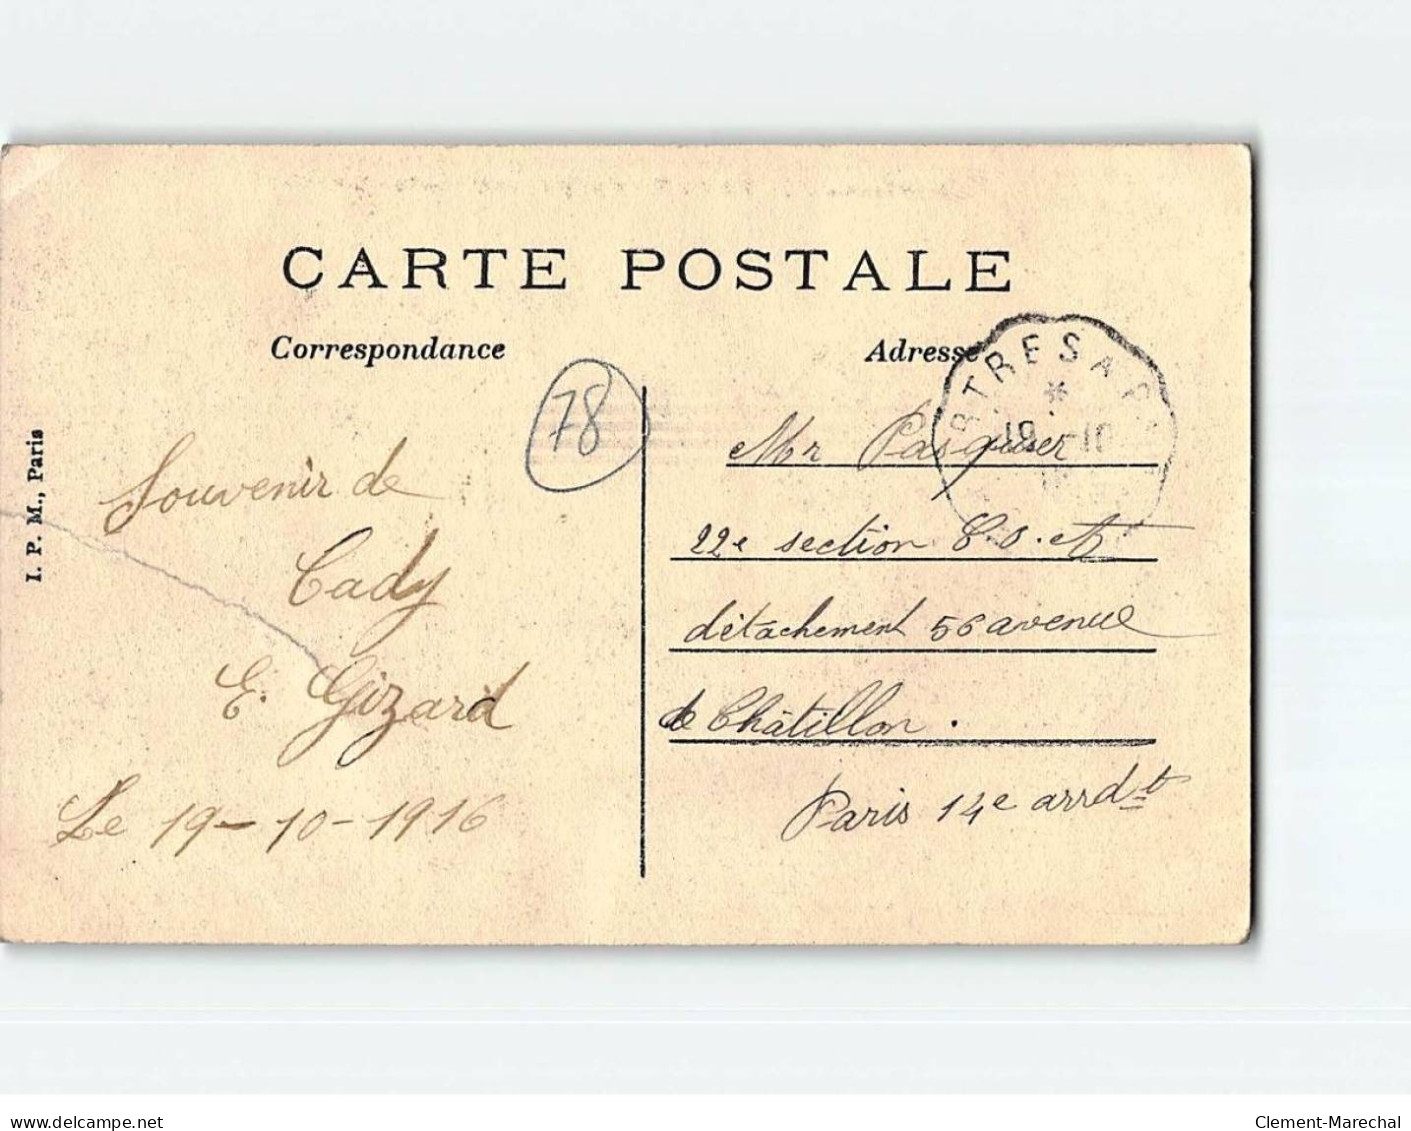 CARTE POSTALE
Correspondance
Adresse
I. P. M., Paris
78
Souvenir de
Cady
E. Gizard
Le 19-10-1916
Mr Pasquier
22e section C.O.A
détachement 56 avenue
de Châtillon.
Paris 14e arrdt
19 -10
delcampe.net
Clement-Marechal